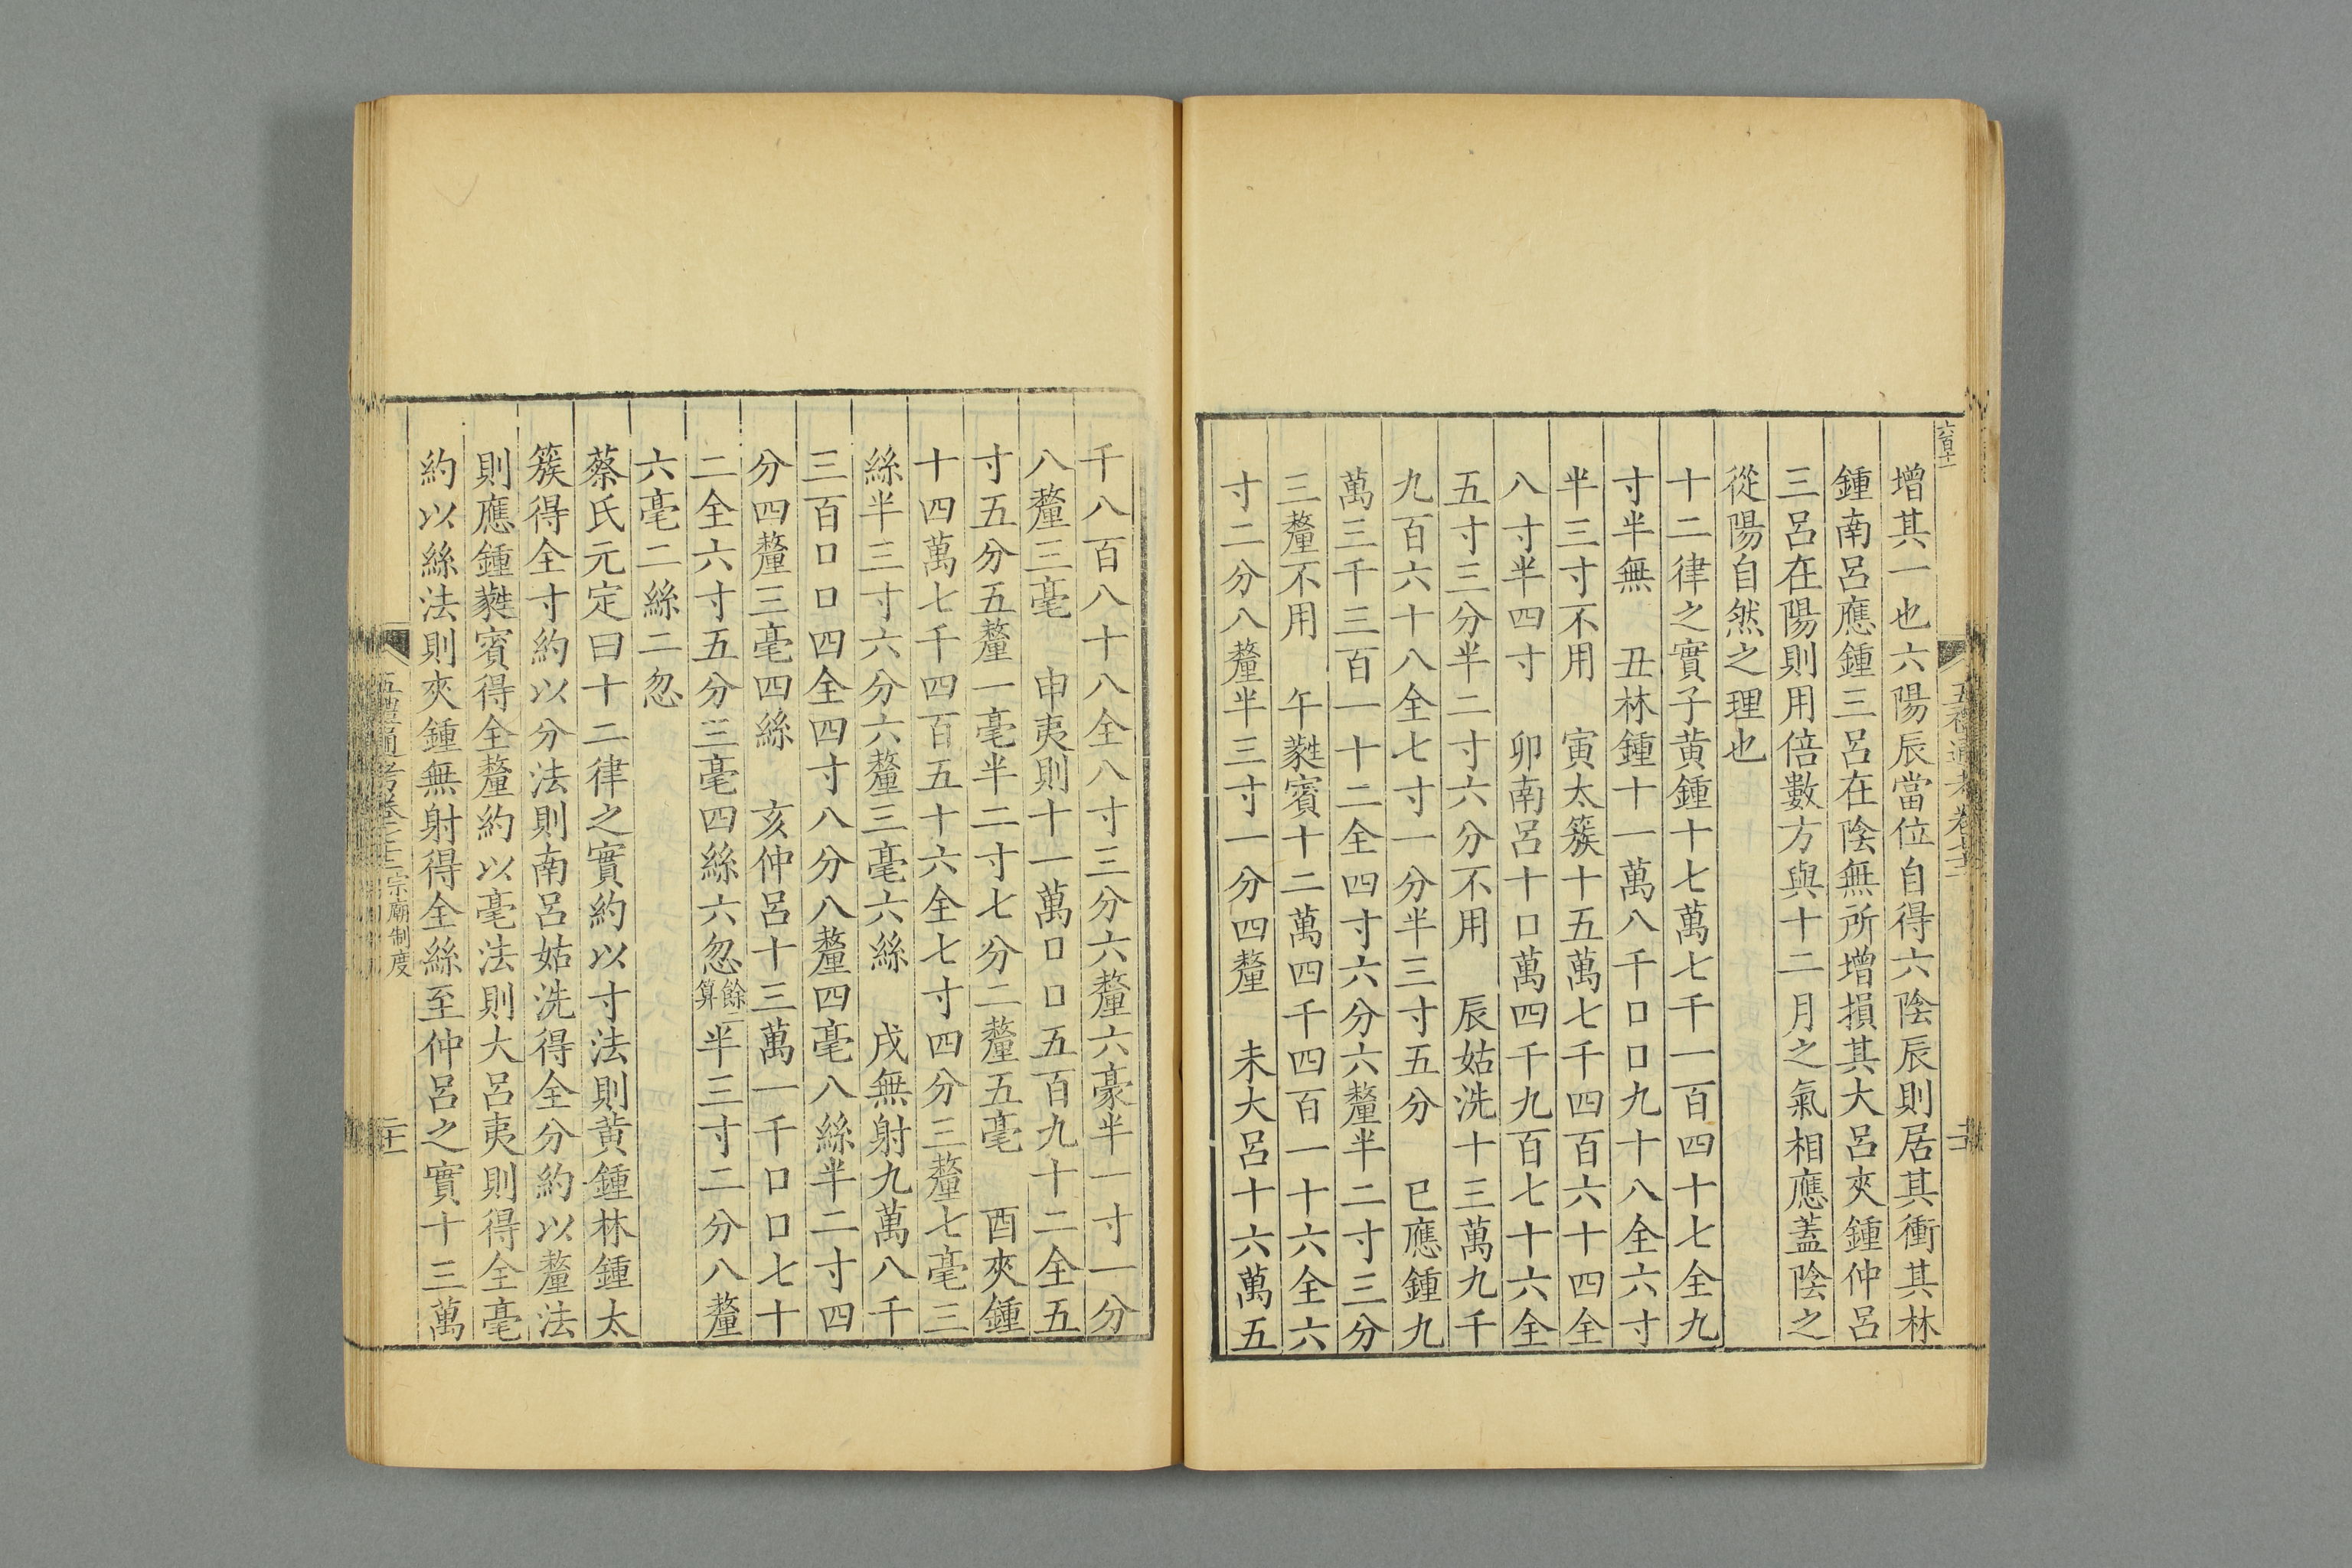 六百十一
增其一也六陽辰當位自得六陰辰則居其衝其林
鍾南呂應鍾三呂在陰無所增損其大呂夾鍾仲呂
三呂在陽則用倍數方與十二月之氣相應蓋陰之
從陽自然之理也
十二律之實子黃鍾十七萬七千一百四十七全九
寸半無　丑林鍾十一萬八千口口九十八全六寸
半三寸不用　寅太簇十五萬七千四百六十四全
八寸半四寸　卯南呂十口萬四千九百七十六全
五寸三分半二寸六分不用　辰姑洗十三萬九千
九百六十八全七寸一分半三寸五分　巳應鍾九
萬三千三百一十二全四寸六分六釐半二寸三分
三釐不用　午蕤賓十二萬四千四百一十六全六
寸二分八釐半三寸一分四釐　未大呂十六萬五
千八百八十八全八寸三分六釐六豪半一寸一分
八釐三毫　申夷則十一萬口口五百九十二全五
寸五分五釐一毫半二寸七分二釐五毫　酉夾鍾
十四萬七千四百五十六全七寸四分三釐七毫三
絲半三寸六分六釐三毫六絲　戌無射九萬八千
三百口口四全四寸八分八釐四毫八絲半二寸四
分四釐三毫四絲　亥仲呂十三萬一千口口七十
二全六寸五分三毫四絲六忽餘二算半三寸二分八釐
六毫二絲二忽
蔡氏元定曰十二律之實約以寸法則黃鍾林鍾太
簇得全寸約以分法則南呂姑洗得全分約以釐法
則應鍾蕤賓得全釐約以毫法則大呂夷則得全毫
約以絲法則夾鍾無射得全絲至仲呂之實十三萬
五禮通考卷七十三 宗廟制度